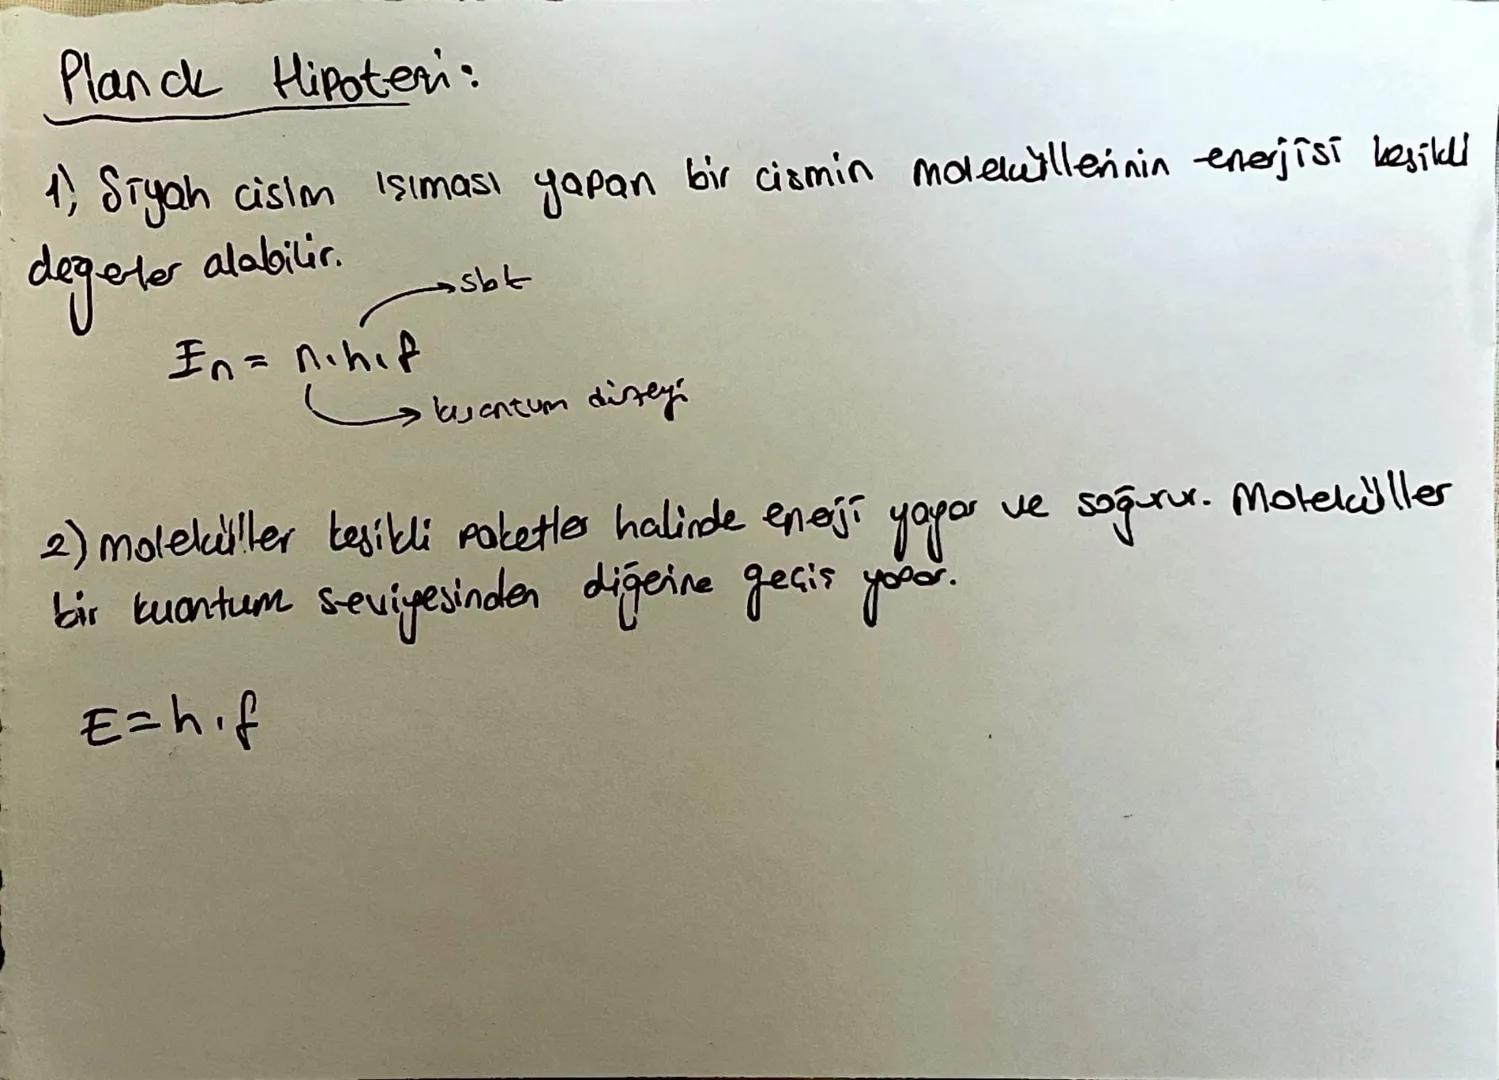 Planck Hipotezi:
1) Siyah cisim ışıması yapan bir cismin moleküllerinin enerjisi kesikli
değerler alabilir.
→ sbt
En = n.h.f
→ kuantum düzeyi
2) moleküller kesikli paketler halinde enerji yayar ve soğurur. Moleküller
bir kuantum seviyesinden diğerine geçiş yapar.
E=h.f